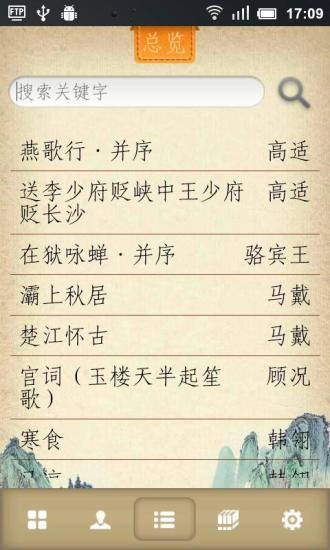 FTP 17:09
总览
搜索关键字
燕歌行·并序 高适
送李少府贬峡中王少府 高适
贬长沙
在狱咏蝉·并序 骆宾王
灞上秋居 马戴
楚江怀古 马戴
宫词（玉楼天半起笙 顾况
歌）
寒食 韩翎